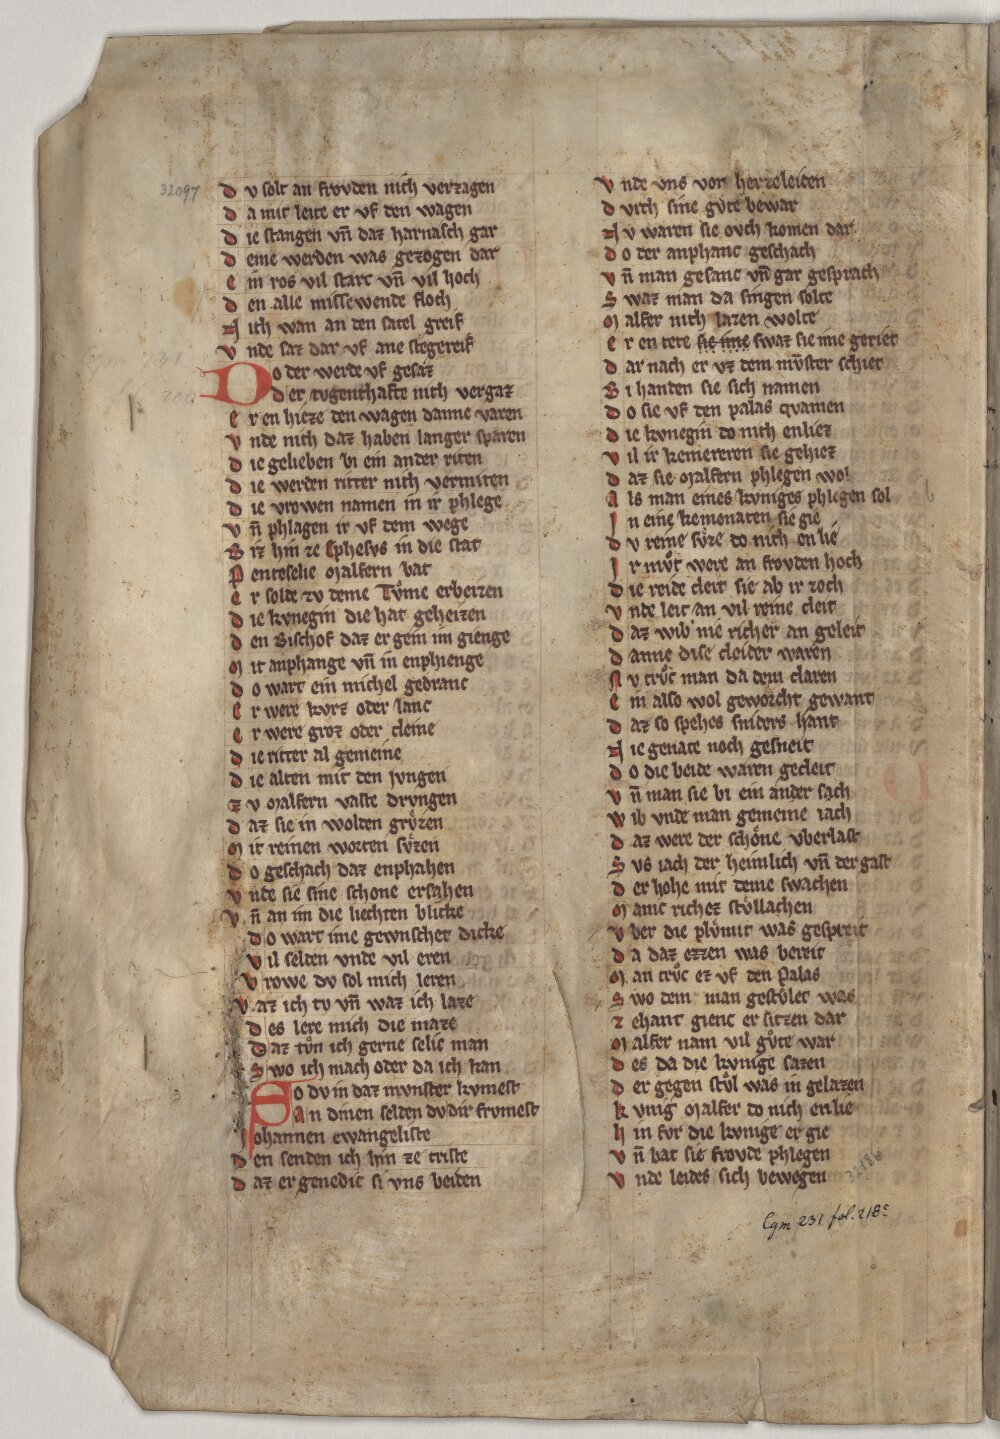 32097
D v solt an frovden nich verzagen
D a mit leite er vf den wagen
D ie stangen vn̄ daz harnasch gar
D eme werden was gezogen dar
E in ros vil starc vn̄ vil hoch
D en alle missewende floch
N ich wan an den satel greif
V nde saz dar vf ane stegereif
Do der werde vf gesaz
D er tvgenthafte nich vergaz
E r en hieze den wagen danne varen
V nde nich daz haben langer sparen
D ie gelieben bi ein ander riten
D ie werden ritter nich vermiten
D ie vrowen namen in ir phlege
V n̄ phlagen ir vf dem wege
B iz hin ze Ephesvs in die stat
P enteselie Malfern bat
E r solde zv deme Tv̊me erbeizen
D ie kvnegin die hat geheizen
D en Bischof daz er gein im gienge
M it anphange vn̄ in enphienge
D o wart ein michel gedranc
E r were kvrz oder lanc
E r were groz oder cleine
D ie ritter al gemeine
D ie alten mit den jvngen
Z v Malfern vaste drvngen
D az sie in wolden grv̊zen
M it reinen worten sv̊zen
D o geschach daz enphahen
V nde sie sine schone ersahen
V n̄ an im die liechten blicke
D o wart ime gewnschet dicke
V il selden vnde vil eren
V rowe dv sol mich leren
W az ich tv vn̄ waz ich laze
D es lere mich die maze
D az tv̊n ich gerne selic man
S wo ich mach oder da ich kan
So dv in daz mvnster kvmest
A n dinen selden dv dir frvmest
Johannen ewangeliste
D en senden ich hin ze triste
D az er genedic si vns beiden
V nde vns vor herzeleiden
D vrch sine gv̊te bewar
N v waren sie ovch komen dar
D o der anphanc geschach
V n̄ man gesanc vn̄ gar gesprach
S waz man da singen solte
M alfer nich lazen wolte
E r en tete sie ime swaz sie ime geriet
D ar nach er vz dem mv̊ster schiet
B i handen sie sich namen
D o sie vf den palas qvamen
D ie kvnegin do nich enliez
V il ir kemereren sie gehiez
D az sie Malfern phlegen wol
A ls man eines kvniges phlegen sol
I n eine kemenaten sie gie
D v reine sv̊ze do nich enlie
I r mv̊t were an frovden hoch
D ie reide cleit sie ab ir zoch
V nde leit an vil reine cleit
D az wib nie richer an geleit
D anne dise cleider waren
N v trv̊c man da dem claren
E in also wol geworcht gewant
D az so spehes sniders hant
N ie genate noch gesneit
D o die beide waren gecleit
V n̄ man sie bi ein ander sach
W ib vnde man gemeine iach
D az were der schóne vberlast
S vs iach der heimlich vn̄ der gast
D er hohe mit deme swachen
M anic richez stv̊llachen
V ber die plv̊mit was gespreit
D a daz ezzen was bereit
M an trv̊c ez vf den Palas
S wo dem man gestv̊let was
Z ehant gienc er sitzen dar
M alfer nam vil gv̊te war
D es da die kvnige sazen
D er gegen stv̊l was in gelazen
K vnig Malfer do nich enlie
H in fvr die kvnige er gie
V n̄ bat sie frovde phlegen
V nde leides sich bewegen
Cgm 231 fol. 218c